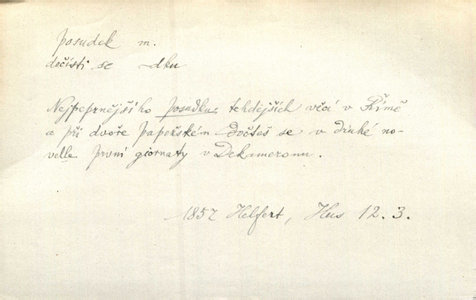 posudek m.
dočísti se -dku
Nejpepřnějšího posudku tehdejších věcí v Římě
a při dvoře papežském dočteš se v druhé no-
velle první giornaty v Dekameronu.
1857 Helfert, Hus 12.3.